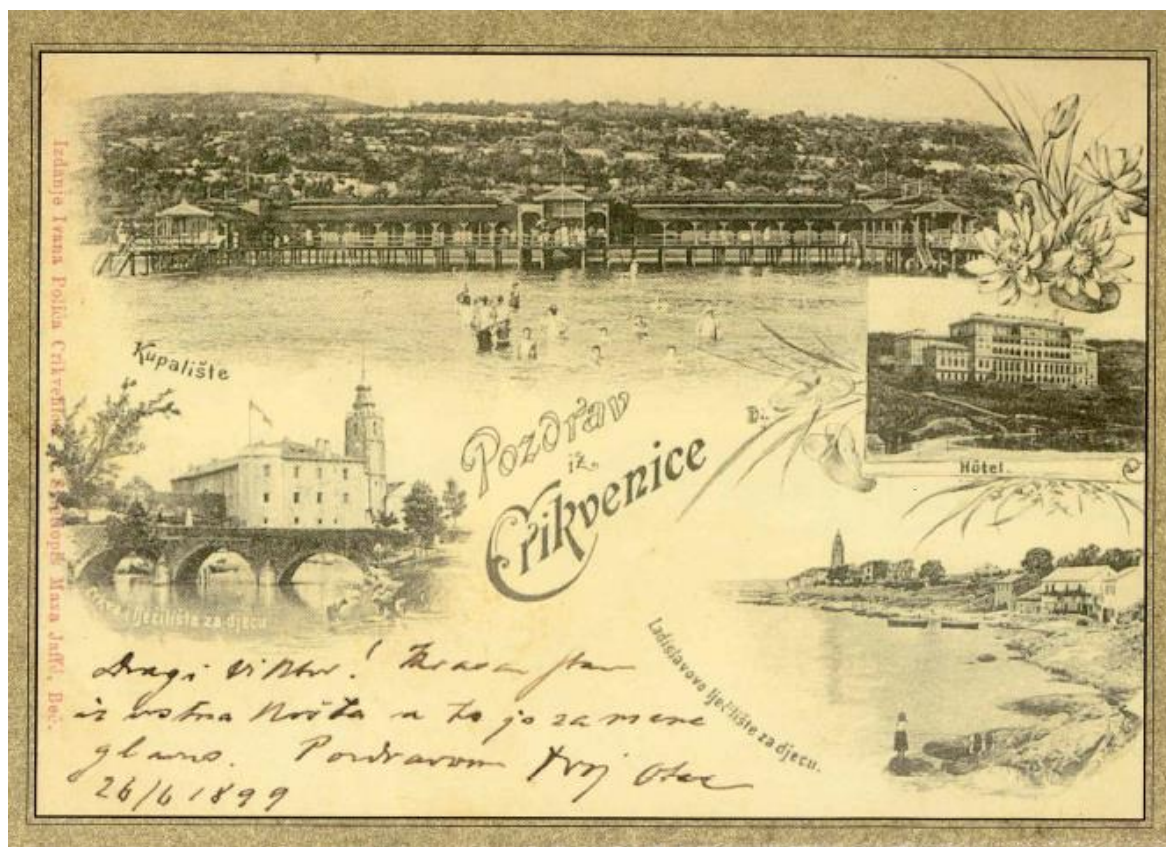 Izdanje Ivana Polića Crikvenica Maxa Jaffé, Beč.
Kupalište
Pozdrav
iz
Crikvenice
Hôtel.
lječilište za djecu
Ladislavovo lječilište za djecu.
Dragi Viktor! Krasan stan
iz Košta a to je za mene
glavno. Pozdravom Tvoj Otac
26/6 1899